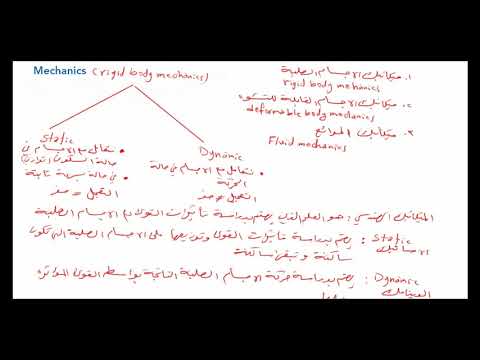 Mechanics (rigid body mechanics)
١. ميكانيك الاجسام الصلبة
rigid body mehanics
٢. ميكانيك الاجسام القابلة للتشوه
deformable body mechanics
٣. ميكانيك الموائع
Fluid mechanics
Static
• تتعامل مع الاجسام في
حالة السكون
في حالة سرعة ثابتة
التعجيل = صفر
Dynamic
• تتعامل مع الاجسام في حالة
الحركة
التعجيل ≠ صفر
الميكانيك الهندسي : هو العلم الذي يهتم بدراسة تأثيرات القوى على الاجسام الصلبة
Static : يهتم بدراسة تأثيرات القوى وتوزيعها على الاجسام الصلبة التي تكون
ساكنة و تبقى ساكنة
Dynamic : يهتم بدراسة حركة الاجسام الصلبة الناتجة بواسطة القوى المؤثرة